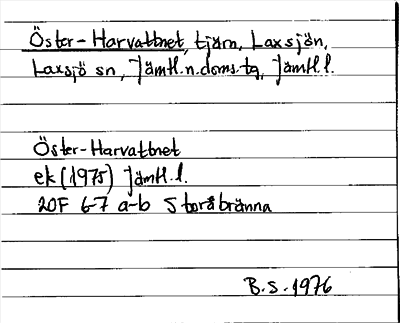 Öster-Harvattnet, tjärn, Laxsjön,
Laxsjö sn, Jämtl.n.doms.tg, Jämtl.l.
Öster-Harvattnet
ek (1975) Jämtl.l.
20F 6-7 a-b Storåbränna
B.S. 1976